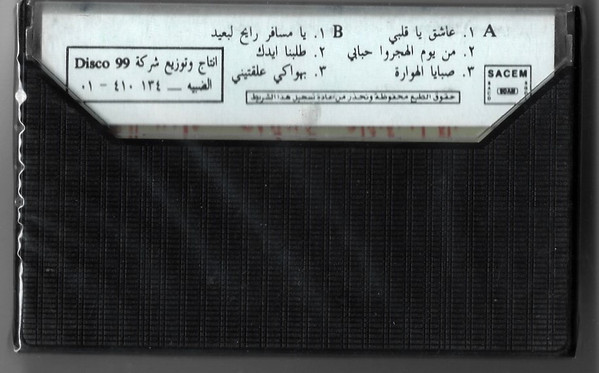 A ١. عاشق يا قلبي
٢. من يوم الهجروا حبابي
٣. صبايا الهوارة
B ١. يا مسافر رايح لبعيد
٢. طلبنا ايدك
٣. بهواكي علقتيني
انتاج وتوزيع شركة Disco 99
الضبيه — ١٣٤ ٤١٠ - ٠١
SACEM
حقوق الطبع محفوظة ونحذر من اعادة تسجيل هذا الشريط